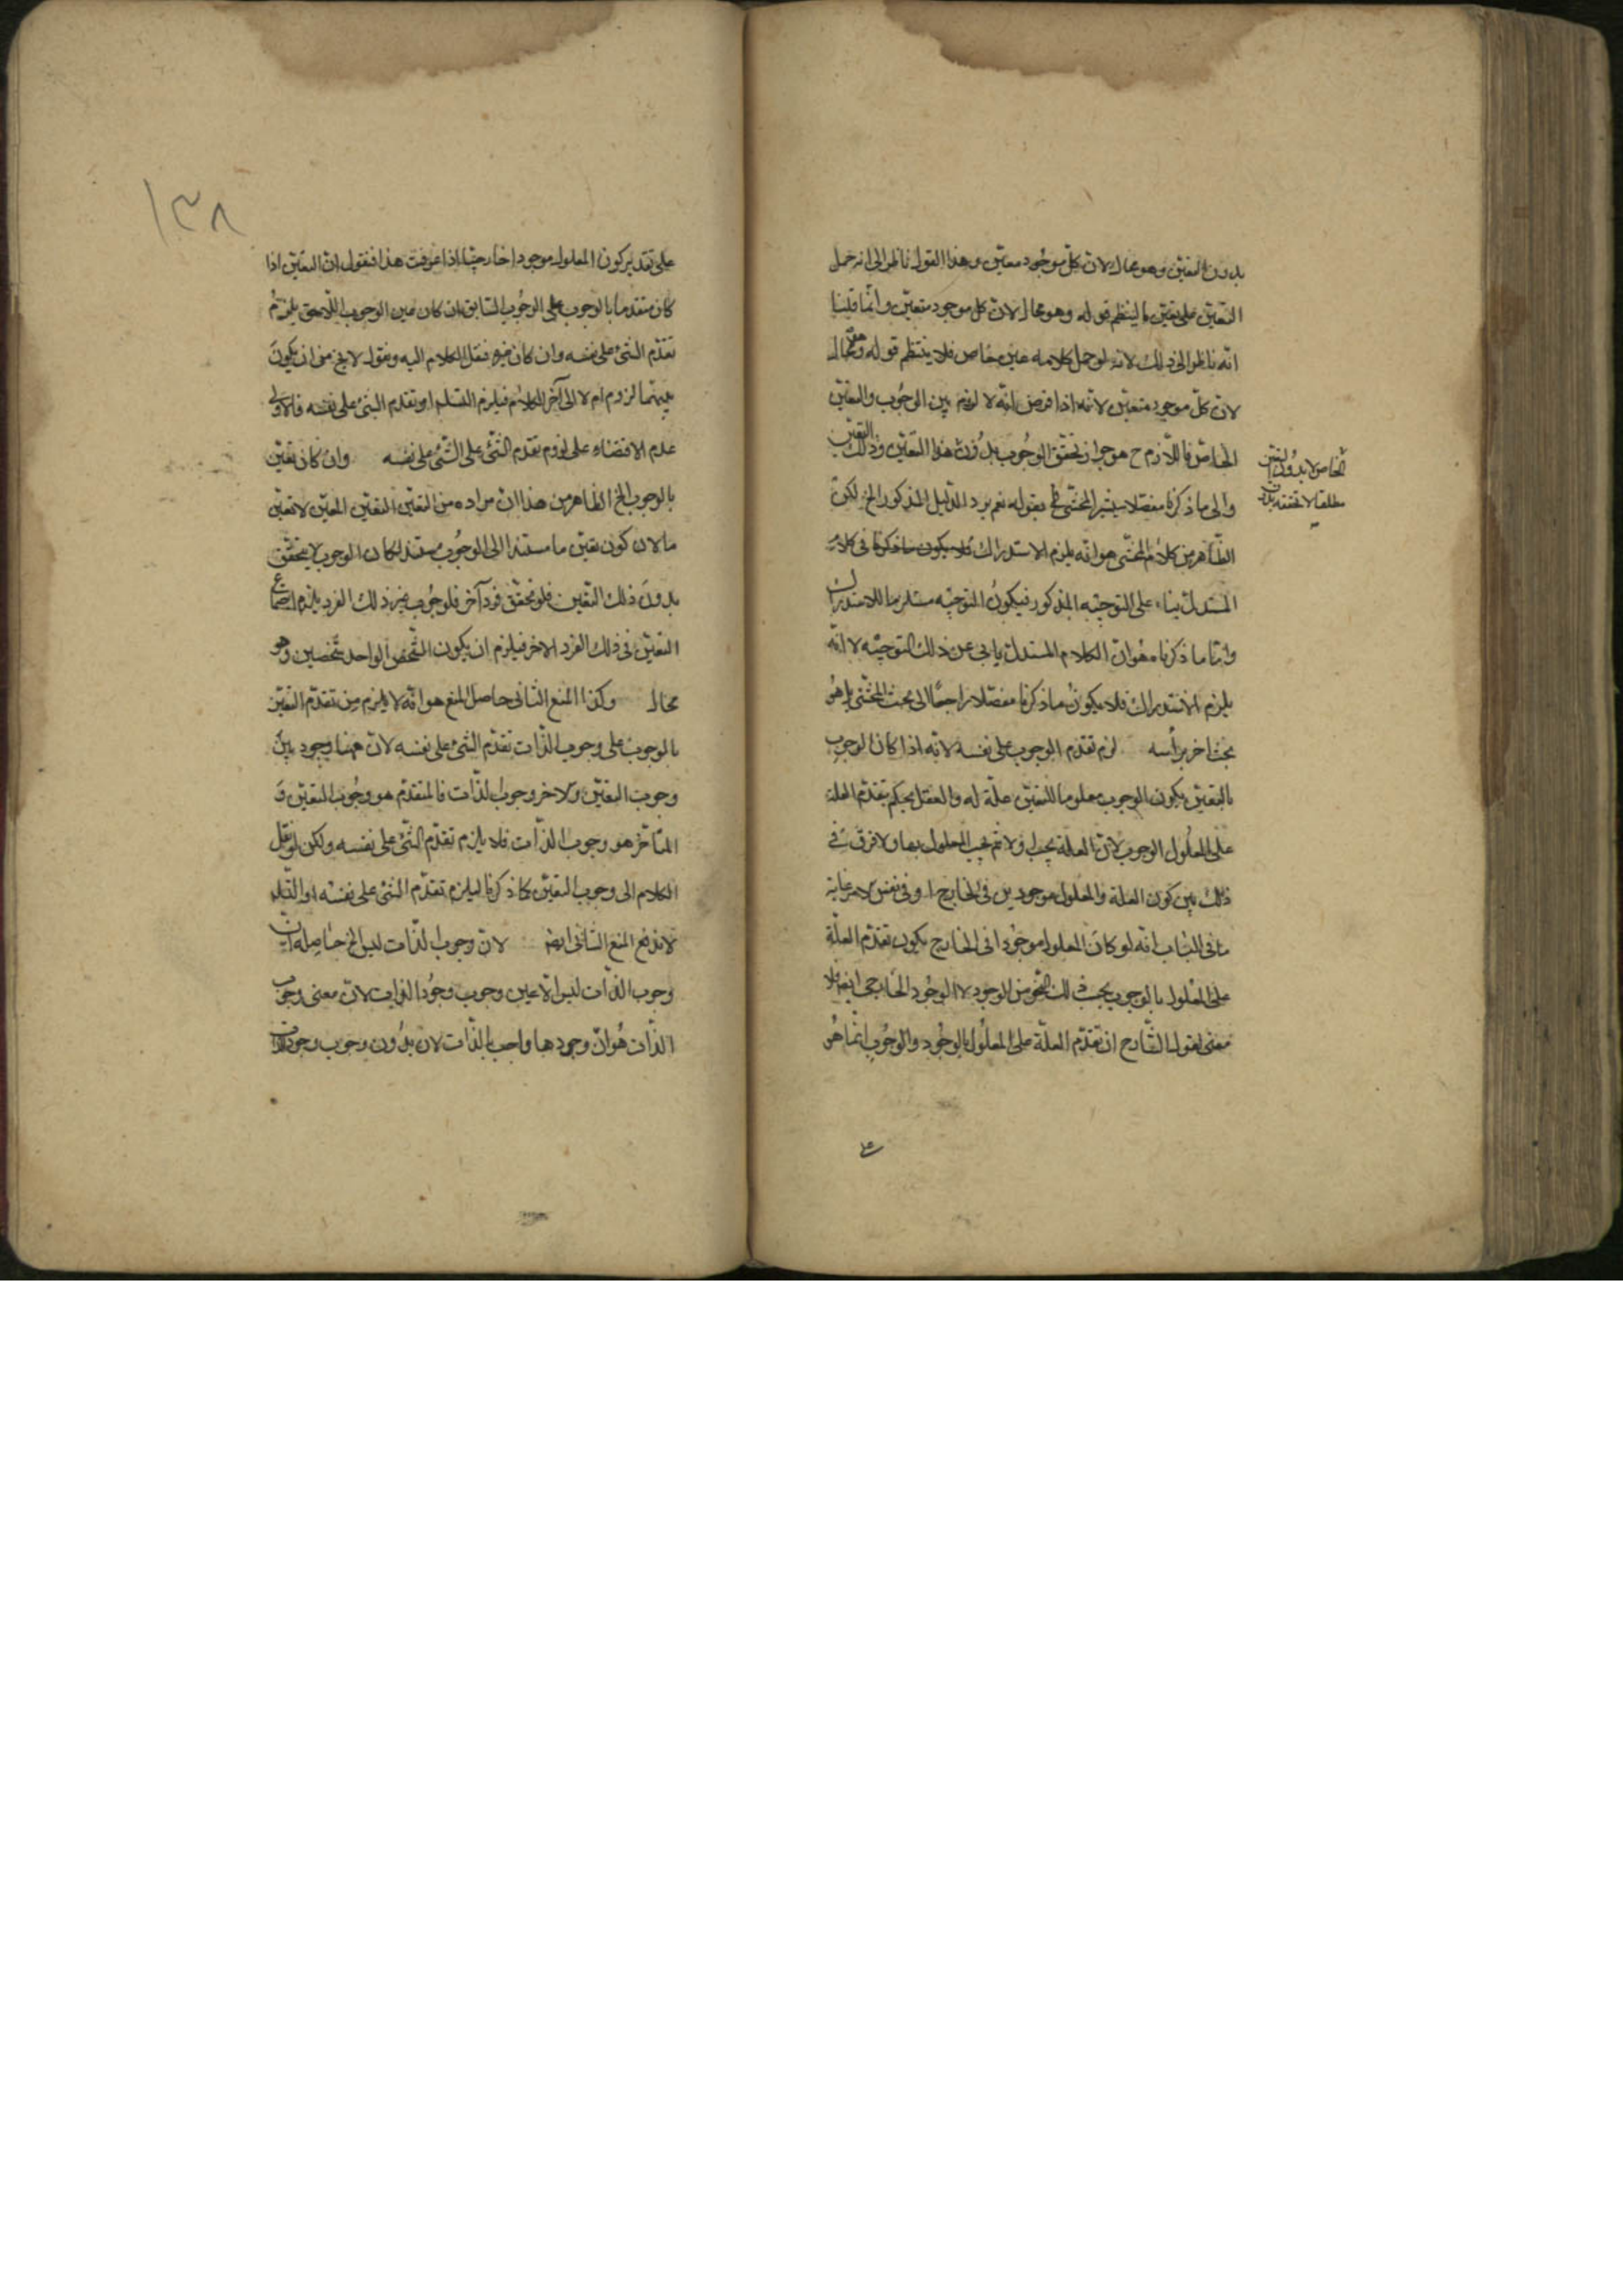 بدون التعين وهو محال لان كل موجود معين وهذا القول ناظر الى انه حمل
التعين على تعين ما لينتظم قوله وهو محال لان كل موجود متعين وانما قلنا
انه ناظر الى ذلك لانه لو حمل كلامه على خاص فلا ينتظم قوله وهو محال
لان كل موجود متعين لانه اذا فرض انه لا لزوم بين الوجوب والتعين
الخاص فاللازم ح هو جواز تحقق الوجوب بدون هذا التعين وذلك التعين
الخاص لا بدون التعين
مطلقا لا تحققه بدون
والى ما ذكرنا مفصلا يشير المحشى بقوله نعم يرد الدليل المذكور الخ لكن
الظاهر من كلام المحشى هو انه يلزم الاستدراك فلا يكون ما ذكرنا فى كلام
المستدل بناء على التوجيه المذكور فيكون التوجيه مستلزما للاستدراك
واما ما ذكرناه هو ان الكلام المستدل يابى عن ذلك التوجيه لا انه
يلزم الاستدراك فلا يكون ما ذكرنا مفصلا راجعا الى بحث المحشى بل هو
بحث اخر براسه لزم تقدم الوجوب على نفسه لانه اذا كان الوجوب
بالتعين يكون الوجوب معلوما للتعين علة له والعقل يحكم بتقدم العلة
على المعلول الوجوب لان العلة يجب اولا ثم يجب المعلول بها ولا فرق فى
ذلك بين كون العلة والمعلول موجودين فى الخارج او فى نفس الامر غاية
ما فى الباب انه لو كان المعلول موجودا فى الخارج يكون تقدم العلة
على المعلول بالوجوب بحسب ذلك النحو من الوجود لا الوجود الخارجى ايضا فلا
معنى لقول الشارح ان تقدم العلة على المعلول بالوجود والوجوب انما هو
١٣٨
على تقدير كون المعلول موجودا خارجيا اذا عرفت هذا فنقول ان التعين اذا
كان متقدما بالوجوب على الوجوب السابق ان كان عين الوجوب اللاحق يلزم
تقدم الشئ على نفسه وان كان غيره ننقل الكلام اليه ونقول لا يخ من ان يكون
بينهما لزوم ام لا الى آخر الكلام فيلزم التسلسل او تقدم الشئ على نفسه فالاولى
عدم الاقتضاء على لزوم تقدم الشئ على الشئ على نفسه وان كان تعين
بالوجوب الخ الظاهر من هذا ان مراده من التعين التعين المعين لا تعين
ما لان كون تعين ما مستندا الى الوجوب مستندا لكان الوجوب لا يتحقق
بدون ذلك التعين فلو تحقق فرد آخر فلوجوب غير ذلك الفرد يلزم اجتماع
التعين فى ذلك الفرد الاخر فيلزم ان يكون الشخص الواحد شخصين وهو
محال وكذا المنع الثانى حاصل المنع هو انه لا يلزم من تقدم التعين
بالوجوب على وجوب الذات تقدم الشئ على نفسه لان ههنا وجود بين
وجوب التعين والاخر وجوب الذات فالمتقدم هو وجوب التعين و
المتاخر هو وجوب الذات فلا يلزم تقدم الشئ على نفسه ولكن لو نقل
الكلام الى وجوب التعين كما ذكرنا ليلزم تقدم الشئ على نفسه او التسلسل
لاندفع المنع الثانى ايضا لان وجوب الذات ليس الخ حاصله ان
وجوب الذات ليس الا عين وجوب وجود الذات لان معنى وجوب
الذات هو ان وجودها واجب بالذات لان بدون وجوب وجود الذات